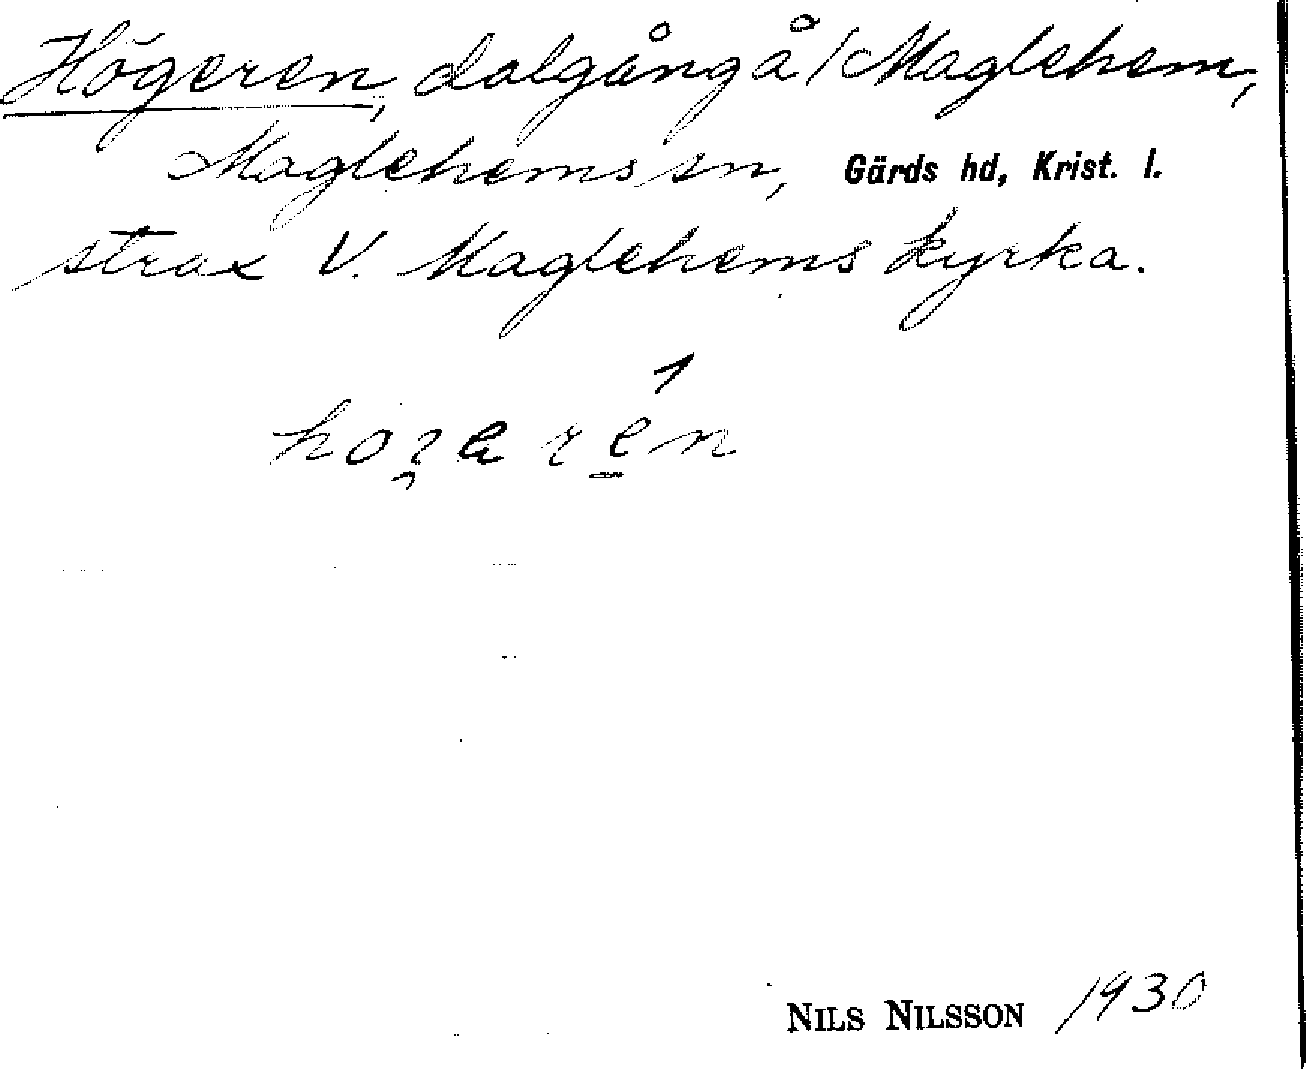 Högeren, dalgång å Maglehem,
Maglehems sn, Gärds hd, Krist. l.
strax V. Maglehems kyrka.
NILS NILSSON 1930